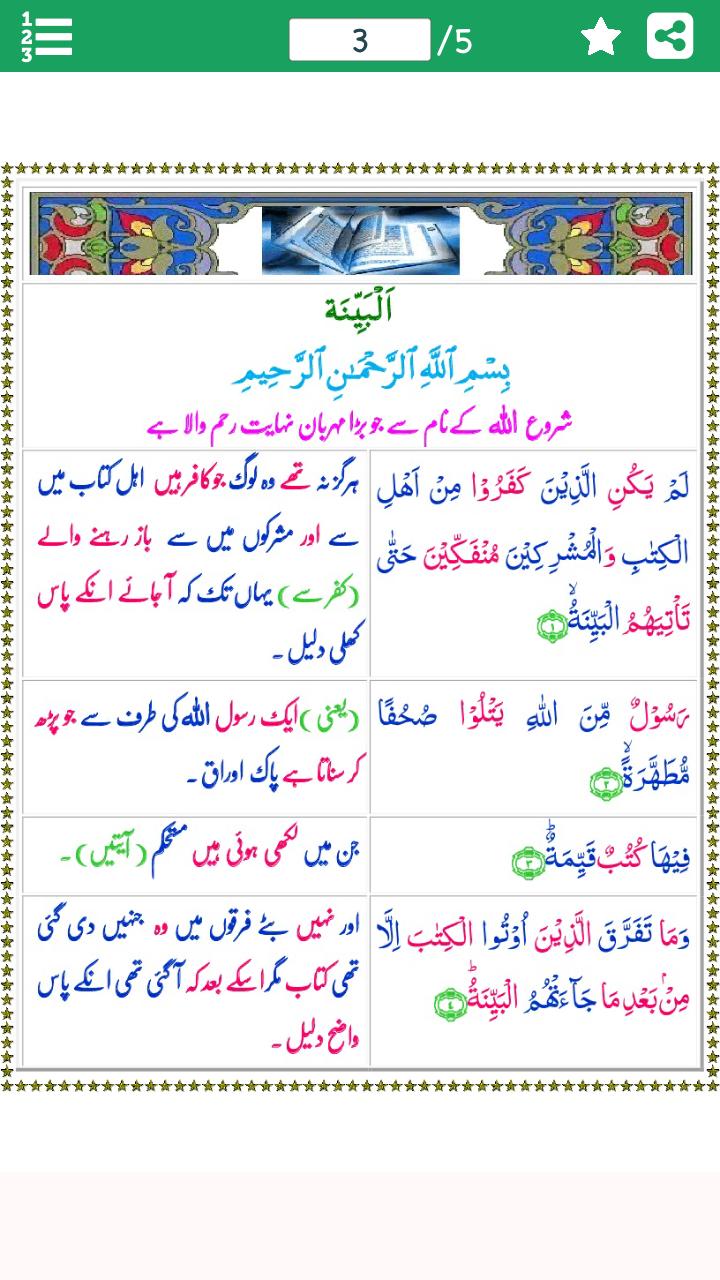 1
2
3
3 /5
اَلْبَيِّنَة
بِسْمِ ٱللَّهِ ٱلرَّحْمَـٰنِ ٱلرَّحِيمِ
شروع اللہ کے نام سے جو بڑا مہربان نہایت رحم والا ہے
لَمْ يَكُنِ الَّذِيْنَ كَفَرُوْا مِنْ اَهْلِ
الْكِتٰبِ وَالْمُشْرِكِيْنَ مُنْفَكِّيْنَ حَتّٰى
تَاْتِيَهُمُ الْبَيِّنَةُۙ ١
ہرگز نہ تھے وہ لوگ جو کافر ہیں اہل کتاب میں
سے اور مشرکوں میں سے باز رہنے والے
(کفر سے) یہاں تک کہ آجائے انکے پاس
کھلی دلیل۔
رَسُوْلٌ مِّنَ اللّٰهِ يَتْلُوْا صُحُفًا
مُّطَهَّرَةًۙ ٢
(یعنی) ایک رسول اللہ کی طرف سے جو پڑھ
کر سناتا ہے پاک اوراق۔
فِيْهَا كُتُبٌ قَيِّمَةٌؕ ٣
جن میں لکھی ہوئی ہیں مستحکم (آیتیں)۔
وَمَا تَفَرَّقَ الَّذِيْنَ اُوْتُوا الْكِتٰبَ اِلَّا
مِنْۢ بَعْدِ مَا جَآءَتْهُمُ الْبَيِّنَةُؕ ٤
اور نہیں بٹے فرقوں میں وہ جنہیں دی گئی
تھی کتاب مگر اسکے بعد کہ آگئی تھی انکے پاس
واضح دلیل۔